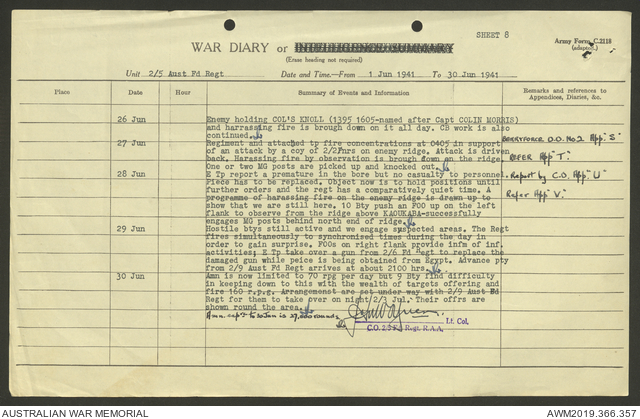 SHEET 8
WAR DIARY or INTELLIGENCE SUMMARY
Army Form C.2118
(adapted.)
(Erase heading not required)
Unit 2/5 Aust Fd Regt Date and Time—From 1 Jun 1941 To 30 Jun 1941
Place Date Hour Summary of Events and Information Remarks and references to
Appendices, Diaries, &c.
26 Jun Enemy holding COL'S KNOLL (1395 1605-named after Capt COLIN MORRIS)
and harrassing fire is brough down on it all day. CB work is also
continued.
27 Jun Regiment and attached tp fire concentrations at 0405 in support
of an attack by a coy of 2/2 Pnrs on enemy ridge. Attack is driven
back. Harassing fire by observation is brough down on the ridge.
One or two MG posts are picked up and knocked out.
28 Jun E Tp report a premature in the bore but no casualty to personnel
Piece has to be replaced. Object now is to hold positions until
further orders and the regt has a comparatively quiet time. A
programme of harassing fire on the enemy ridge is drawn up to
show that we are still here. 10 Bty push an FOO up on the left
flank to observe from the ridge above KAOUKABA-successfully
engages MG posts behind north end of ridge.
29 Jun Hostile btys still active and we engage suspected areas. The Regt
fires simultaneously to synchronised times during the day in
order to gain surprise. FOOs on right flank provide infm of inf.
activities; E Tp take over a gun from 2/6 Fd Regt to replace the
damaged gun while peice is being obtained from Egypt. Advance pty
from 2/9 Aust Fd Regt arrives at about 2100 hrs.
30 Jun Amn is now limited to 70 rpg per day but 9 Bty find difficulty
in keeping down to this with the wealth of targets offering and
fire 160 r.p.g. Arrangemenst are set under way with 2/9 Aust Fd
Regt for them to take over on night 2/3 Jul. Their offrs are
shown round the area.
Amn. exp? to 30 Jun is 27,000 rounds
Lt. Col.
C.O. 2/5 Fd Regt. R.A.A.
BERRYFORCE O.O. No 2 App "S"
REFER App "T".
Report by C.O. App "U"
Refer App "V".
AUSTRALIAN WAR MEMORIAL
AWM2019.366.357